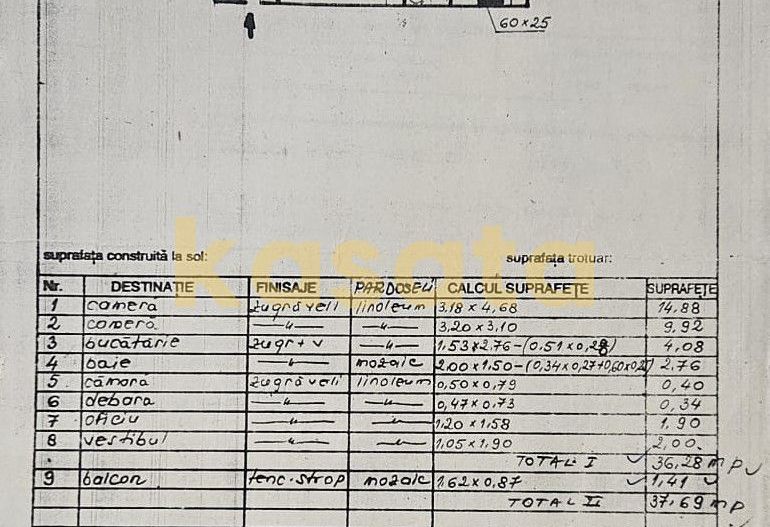 60x25
kasata
suprafața construită la sol: suprafața trotuar:
Nr. DESTINAȚIE FINISAJE PARDOSELI CALCUL SUPRAFEȚE SUPRAFEȚE
1 cameră zugrăveli linoleum 3,18 x 4,68 14,88
2 cameră —〃— —〃— 3,20 x 3,10 9,92
3 bucătărie zugr+v —〃— 1,53x2,76-(0,51x0,28) 4,08
4 baie —〃— mozaic 2,00x1,50-(0,34x0,27+0,60x0,25) 2,76
5 cămară zugrăveli linoleum 0,50 x 0,79 0,40
6 debara —〃— —〃— 0,47x0,73 0,34
7 oficiu —〃— —〃— 1,20 x 1,58 1,90
8 vestibul —〃— —〃— 1,05x1,90 2,00
TOTAL I 36,28 mp
9 balcon tenc.strop mozaic 1,62 x 0,87 1,41
TOTAL II 37,69 mp